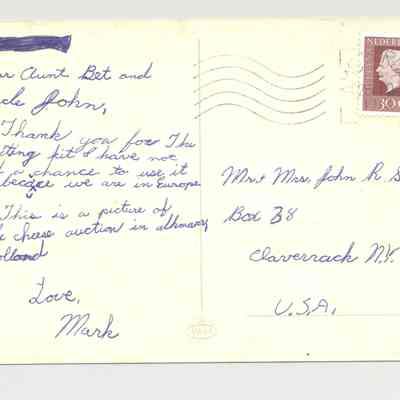 ar Aunt Bet and
cle John,
Thank you for The
ting kit I have not
a chance to use it
because we are in Europe
This is a picture of
cheese auction in alkmaar,
olland
Love,
Mark
Mr + Mrs. John R. S
Box 38
Claverrack N.Y.
U.S.A.
NEDERL
30c